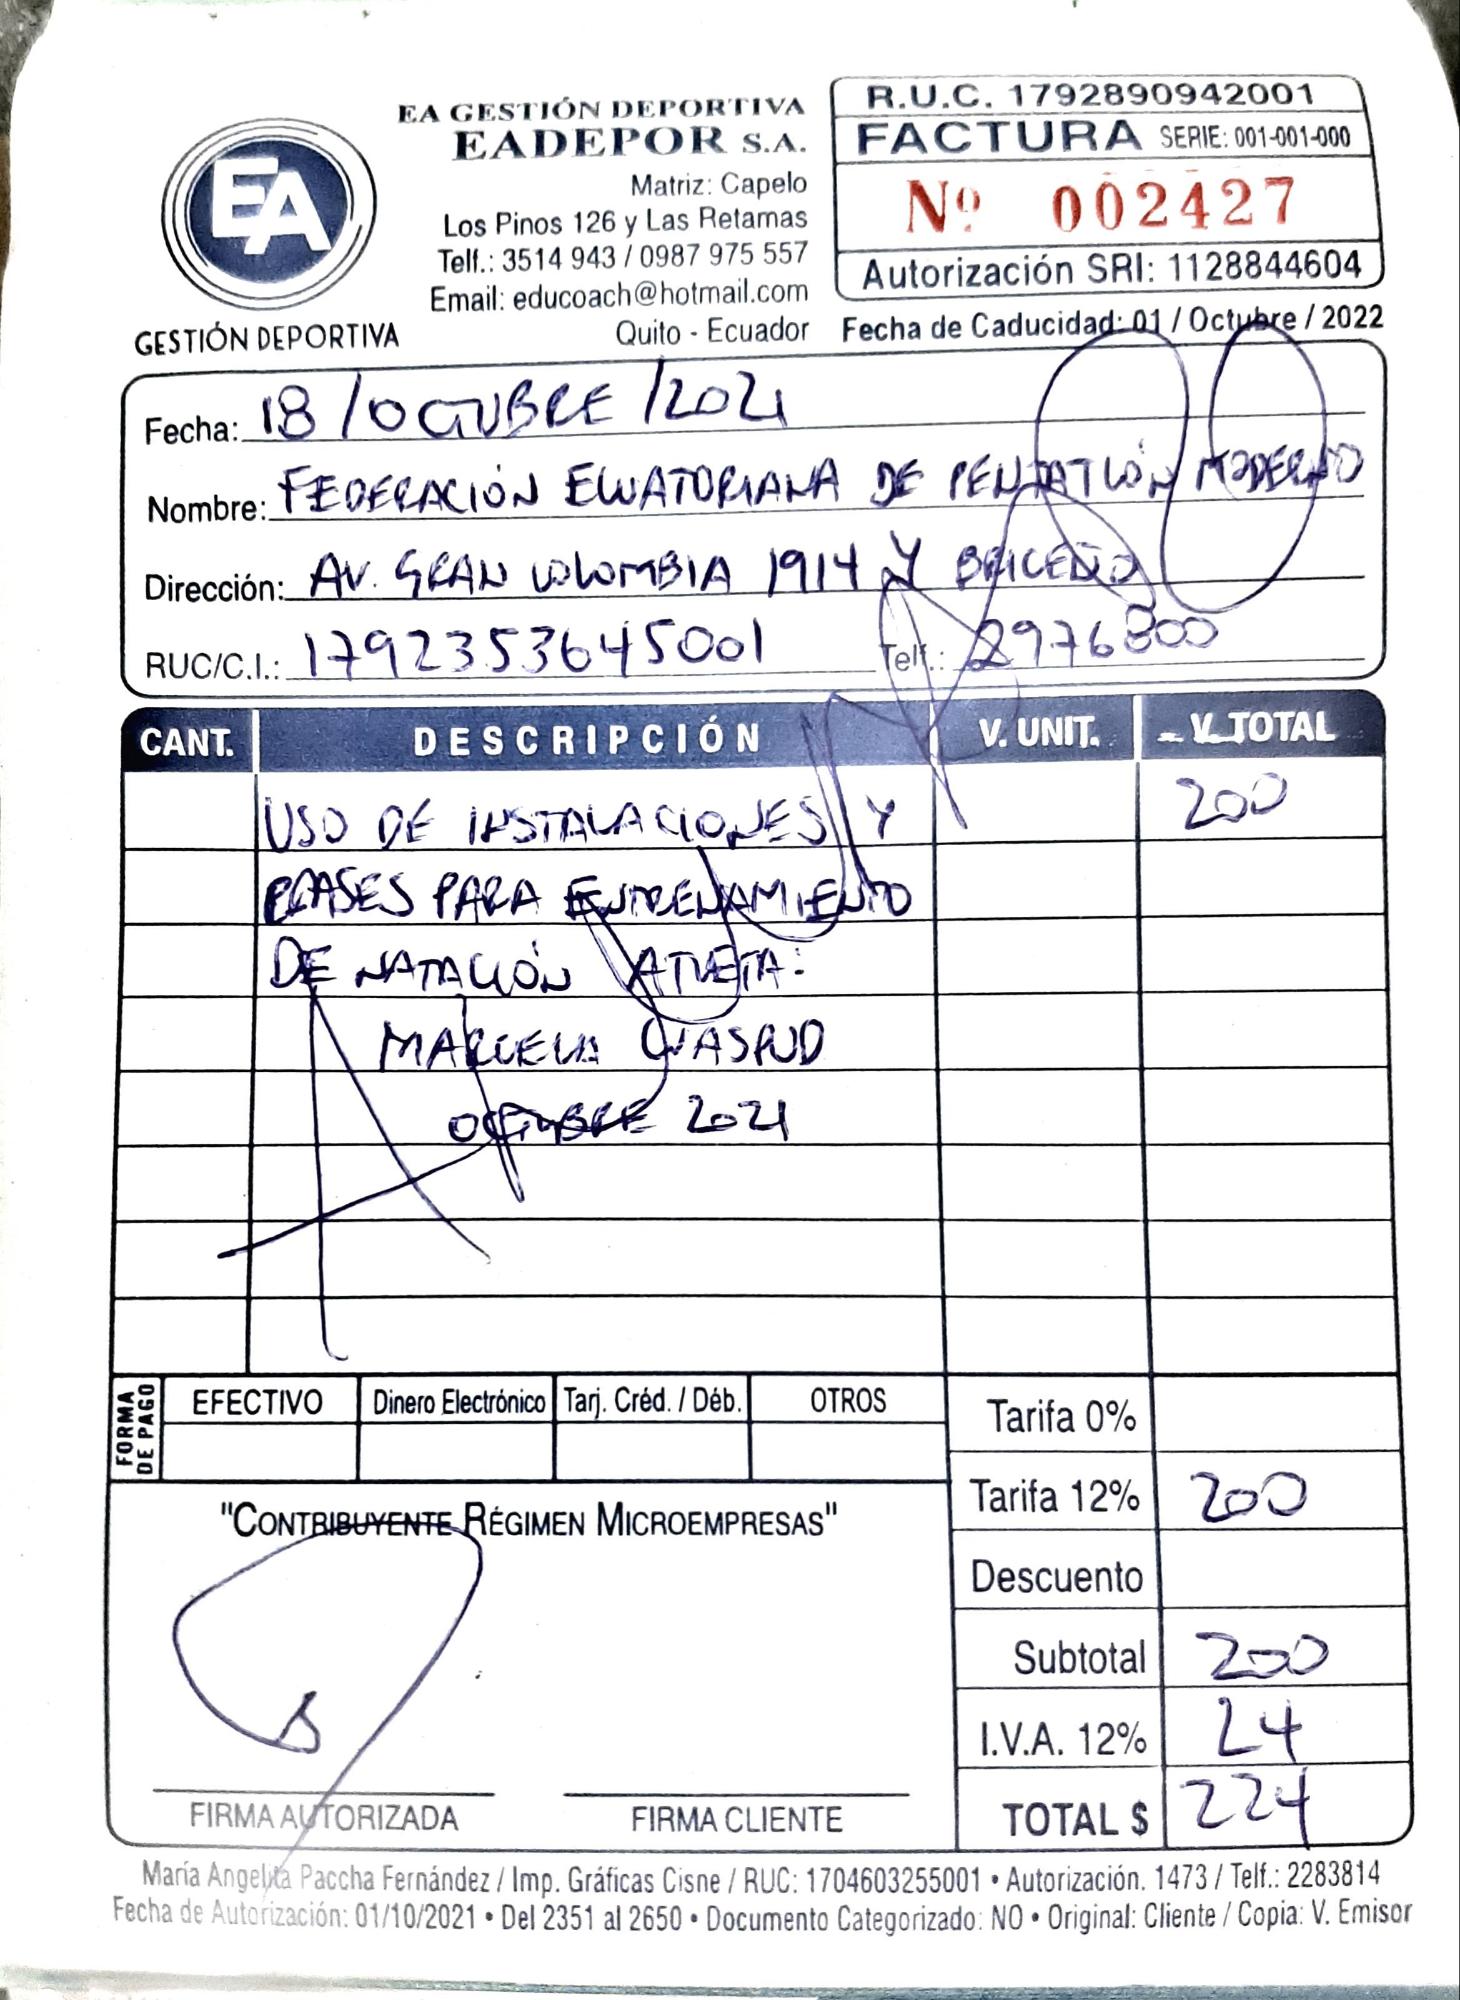 EA GESTIÓN DEPORTIVA
EADEPOR S.A.
Matriz: Capelo
Los Pinos 126 y Las Retamas
Telf.: 3514 943 / 0987 975 557
Email: educoach@hotmail.com
Quito - Ecuador
EA
GESTIÓN DEPORTIVA
R.U.C. 1792890942001
FACTURA SERIE: 001-001-000
Nº 002427
Autorización SRI: 1128844604
Fecha de Caducidad: 01 / Octubre / 2022
Fecha: 18 / OCTUBRE / 2021
Nombre: FEDERACIÓN ECUATORIANA DE PENTATLÓN MODERNO
Dirección: AV. GRAN COLOMBIA 1914 Y BRICEÑO
RUC/C.I.: 1792353645001 Telf.: 2976800
CANT. DESCRIPCIÓN V. UNIT. V. TOTAL
USO DE INSTALACIONES Y 200
CLASES PARA ENTRENAMIENTO
DE NATACIÓN ATLETA:
MARCELA CUASPUD
OCTUBRE 2021
FORMA DE PAGO
EFECTIVO Dinero Electrónico Tarj. Créd. / Déb. OTROS
Tarifa 0%
Tarifa 12% 200
Descuento
Subtotal 200
I.V.A. 12% 24
TOTAL $ 224
"CONTRIBUYENTE RÉGIMEN MICROEMPRESAS"
FIRMA AUTORIZADA FIRMA CLIENTE
María Angelita Paccha Fernández / Imp. Gráficas Cisne / RUC: 1704603255001 • Autorización. 1473 / Telf.: 2283814
Fecha de Autorización: 01/10/2021 • Del 2351 al 2650 • Documento Categorizado: NO • Original: Cliente / Copia: V. Emisor